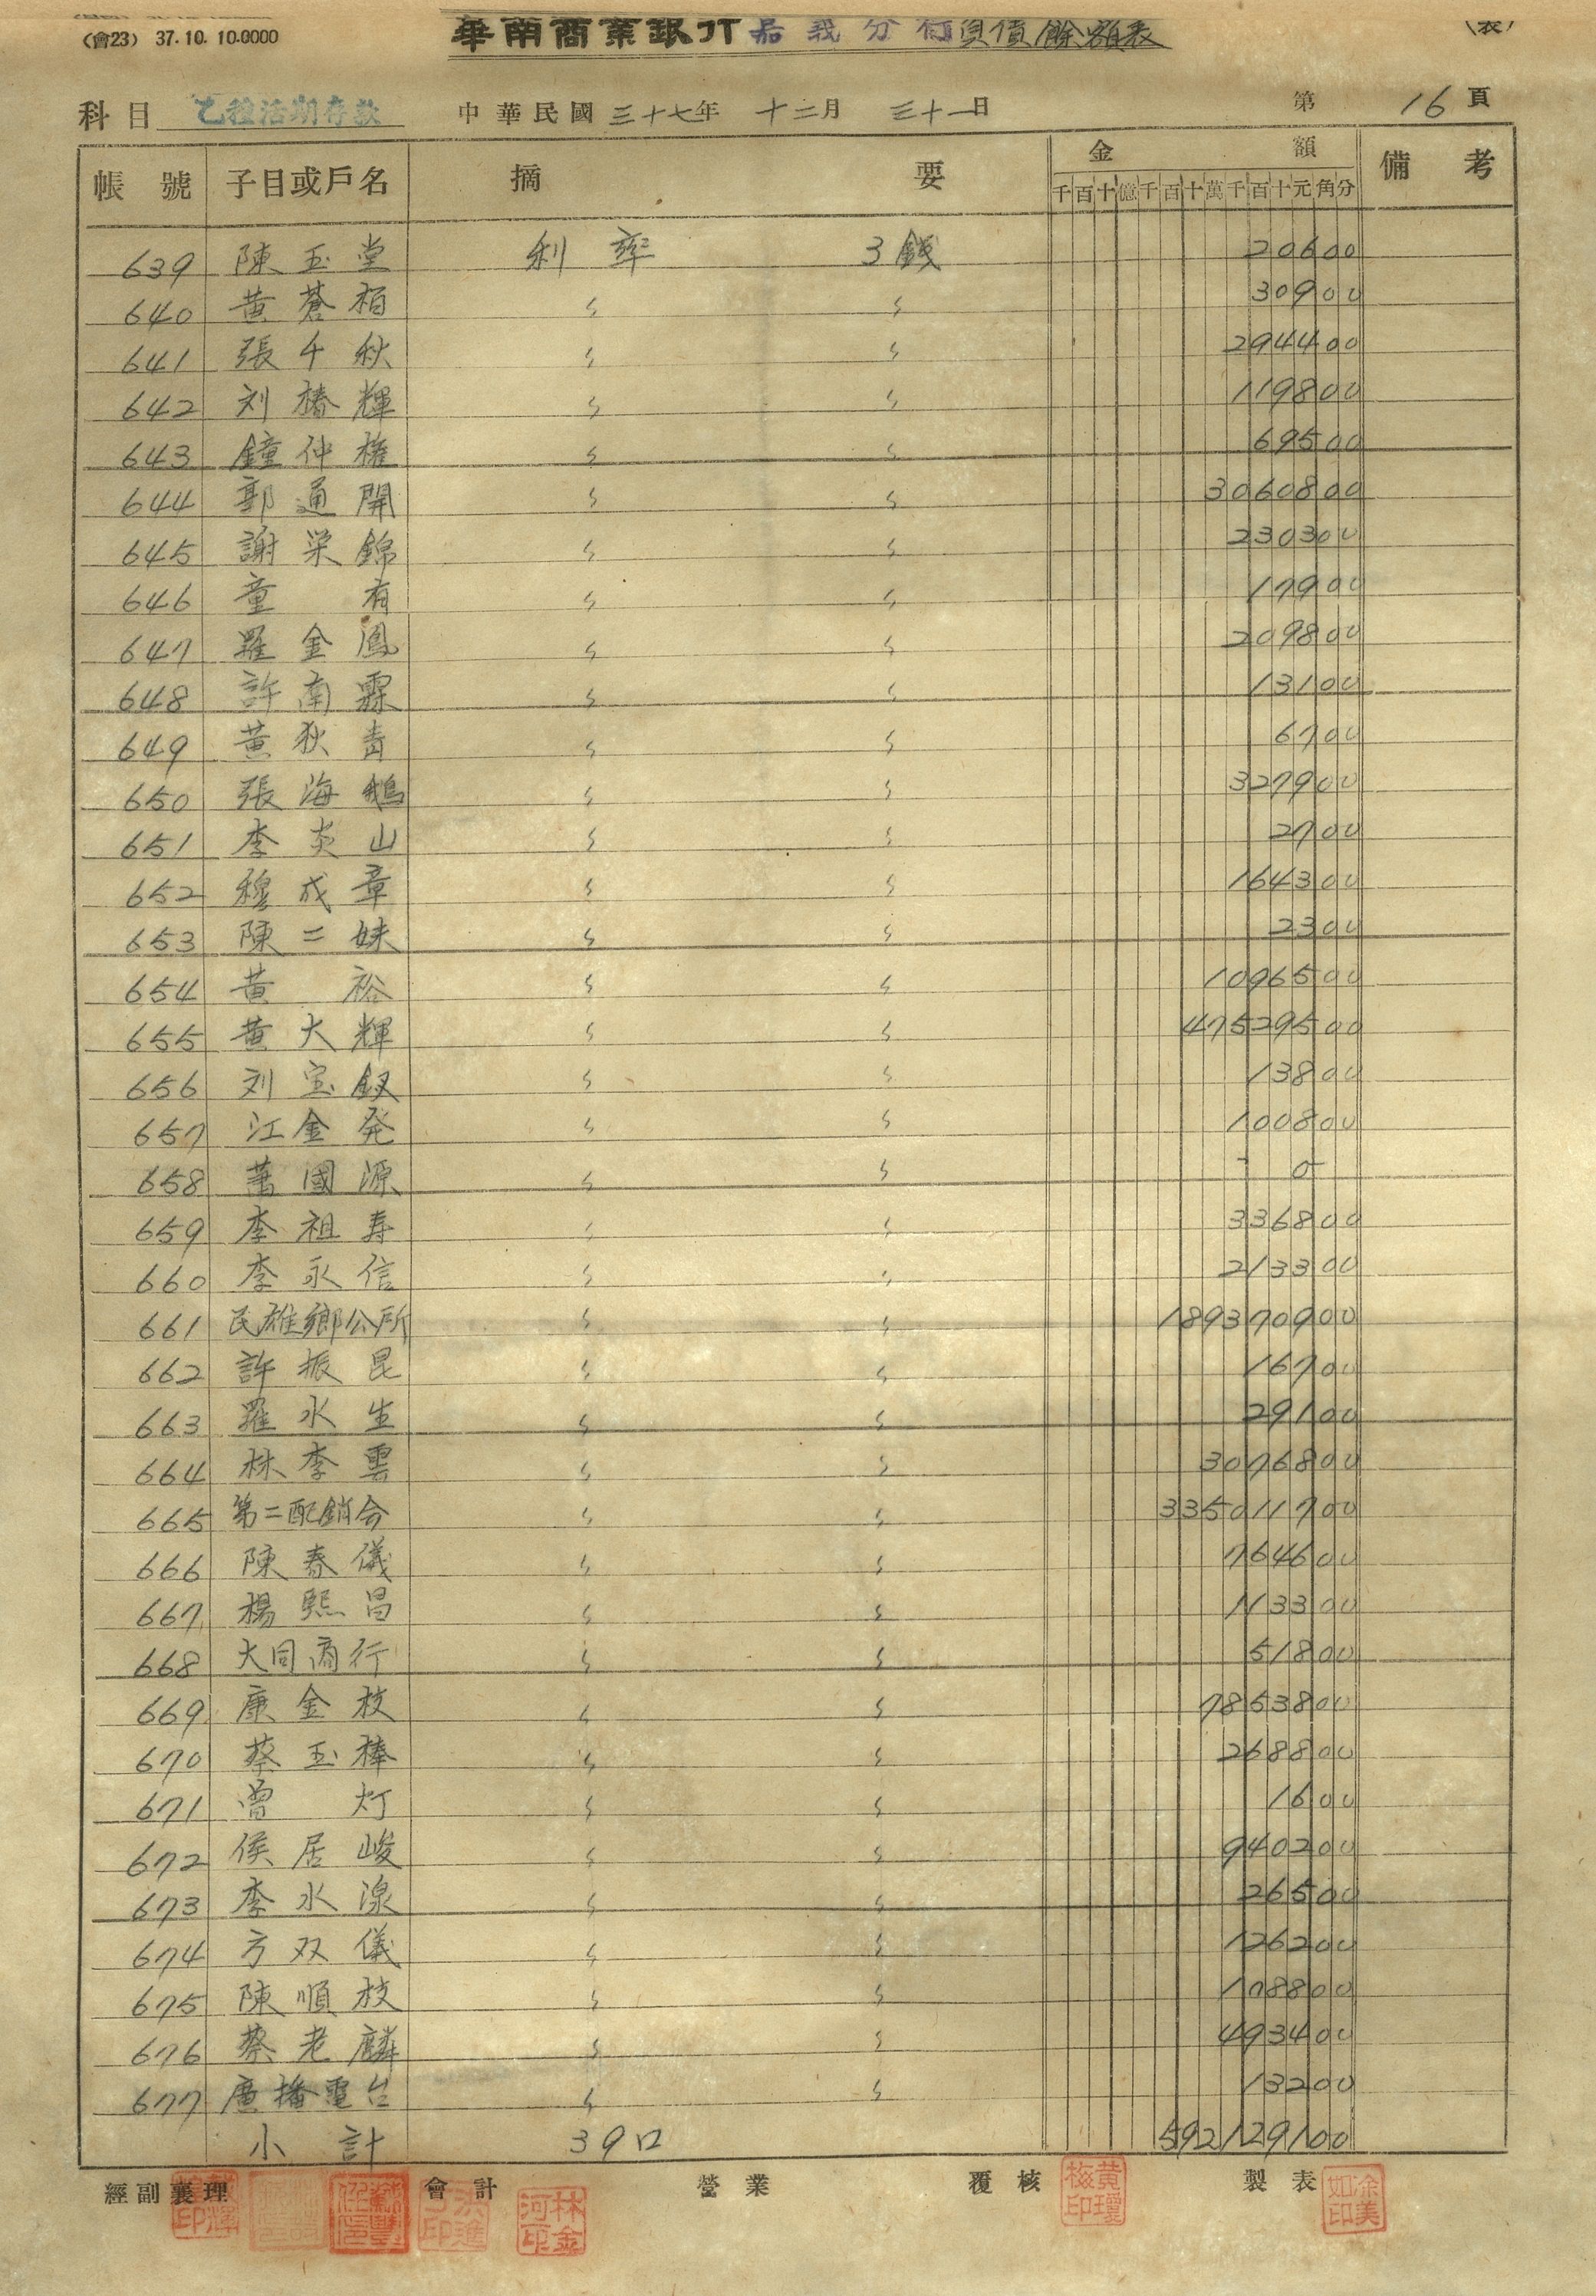 (會23) 37.10.10.0000
華南商業銀行嘉義分行負債餘額表
(表)
科目 乙種活期存款 中華民國三十七年 十二月 三十一日 第 16 頁
帳號 子目或戶名 摘要 金額 備考
千百十億千百十萬千百十元角分
639 陳玉堂 利率 3錢 20600
640 黃蒼栢 〃 〃 30900
641 張千秋 〃 〃 294400
642 刘椿輝 〃 〃 119800
643 鐘仲権 〃 〃 69500
644 郭通開 〃 〃 3060800
645 謝栄錦 〃 〃 230300
646 童有 〃 〃 17900
647 羅金鳳 〃 〃 209800
648 許南霖 〃 〃 13100
649 黃狄青 〃 〃 6700
650 張海鵝 〃 〃 327900
651 李炎山 〃 〃 2700
652 穆成章 〃 〃 164300
653 陳二妹 〃 〃 2300
654 黃裕 〃 〃 1096500
655 黃大輝 〃 〃 47529500
656 刘宝釵 〃 〃 13800
657 江金発 〃 〃 100800
658 萬國源 〃 〃 - 0 -
659 李祖寿 〃 〃 336800
660 李永信 〃 〃 213300
661 民雄鄉公所 〃 〃 189370900
662 許振昆 〃 〃 16700
663 羅水生 〃 〃 29100
664 林李雲 〃 〃 3076800
665 第二配銷会 〃 〃 335011700
666 陳春儀 〃 〃 764600
667 楊熙昌 〃 〃 113300
668 大同商行 〃 〃 51800
669 康金枝 〃 〃 7853800
670 蔡玉棒 〃 〃 268800
671 曾灯 〃 〃 1600
672 侯居峻 〃 〃 940200
673 李水湶 〃 〃 26500
674 方双儀 〃 〃 126200
675 陳順枝 〃 〃 178800
676 蔡老麟 〃 〃 493400
677 廣播電台 〃 〃 13200
小計 39口 592129100
經副襄理 會計 營業 覆核 製表
林金河印
黃瓊梅印
涂美如印